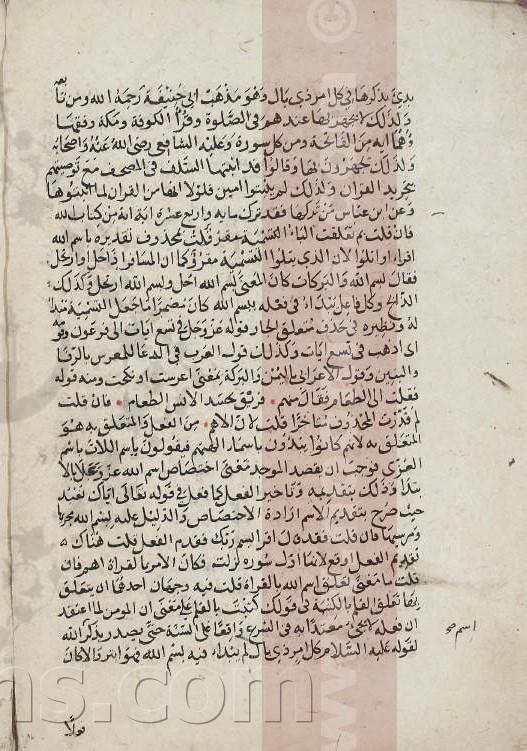 بدئ بذكرها في كل امر ذي بال وهو مذهب ابي حنيفة رحمه الله ومن تابعه
ولذلك لا يجهر بها عندهم في الصلوة وقراء الكوفة ومكة وفقهاؤهما
انها اية من الفاتحة ومن كل سورة وعليه الشافعي رضي الله عنه واصحابه
ولذلك يجهرون بها وقالوا قد اثبتها السلف في المصحف مع توصيتهم
بتجريد القران ولذلك لم يثبتوا امين فلولا انها من القران لما اثبتوها
وعن ابن عباس من تركها فقد ترك ماية واربع عشرة اية من كتاب الله
فان قلت بم تعلقت الباء قلت بمحذوف تقديره باسم الله
اقرا او اتلوا لان الذي يتلوا التسمية مقرؤ كما ان المسافر اذا حل او ارتحل
فقال بسم الله والبركات كان المعنى بسم الله احل وبسم الله ارتحل وكذلك
الذابح وكل فاعل يبتداء في فعله ببسم الله كان مضمرا ما جعل التسمية مبداء
له ونظيره في حذف متعلق الجار قوله عز وجل في تسع ايات الى فرعون وقومه
اي اذهب في تسع ايات وكذلك قول العرب في الدعا للمعرس بالرفا
والبنين وقول الاعرابي باليمن والبركة بمعنى اعرست او نكحت ومنه قوله
فقلت الى الطعام فقال منهم فريق نحسد الانس الطعام فان قلت
لم قدرت المحذوف متاخرا قلت لان الاهم من الفعل والمتعلق به هو
المتعلق به لانهم كانوا يبدؤن باسماء الهتهم فيقولون باسم اللات باسم
العزى فوجب ان يقصد الموحد معنى اختصاص اسم الله عز وعلا بالا
بتدا وذلك بتقديمه وتاخير الفعل كما فعل في قوله تعالى اياك نعبد
حيث صرح بتقديم الاسم ارادة الاختصاص والدليل عليه بسم الله مجريها
ومرسيها فان قلت فقد قال اقرا باسم ربك فقدم الفعل قلت هناك
تقديم الفعل اوقع لانها اول سورة نزلت فكان الامر بالقراة اهم فان
قلت ما معنى تعلق اسم الله بالقراة قلت فيه وجهان احدهما ان يتعلق
بها تعلق القلم بالكتبة في قولك كتبت بالقلم على معنى ان المومن لما اعتقد
ان فعله لا يجئ معتدا به في الشرع واقعا على السنة حتى يصدر بذكر الله
لقوله عليه السلام كل امر ذي بال لم يبتداء فيه بسم الله فهو ابتر والا كان
اسم صح
فعلا
ms.com